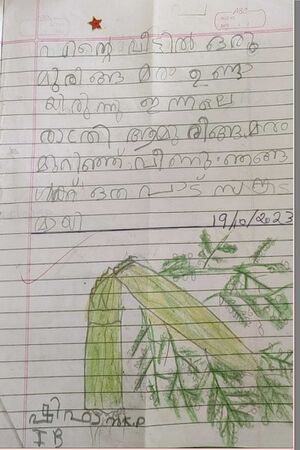 എന്റെ വീട്ടിൽ ഒരു
മുരിങ്ങ മരം ഉണ്ടാ
യിരുന്നു ഇന്നലെ
രാത്രി ആമുരിങ്ങ മരം
മുറിഞ്ഞ് വീണു ഞങ്ങ
ൾക്ക് ഒരു പാട് സങ്കട
മായി
19/10/2023
I B